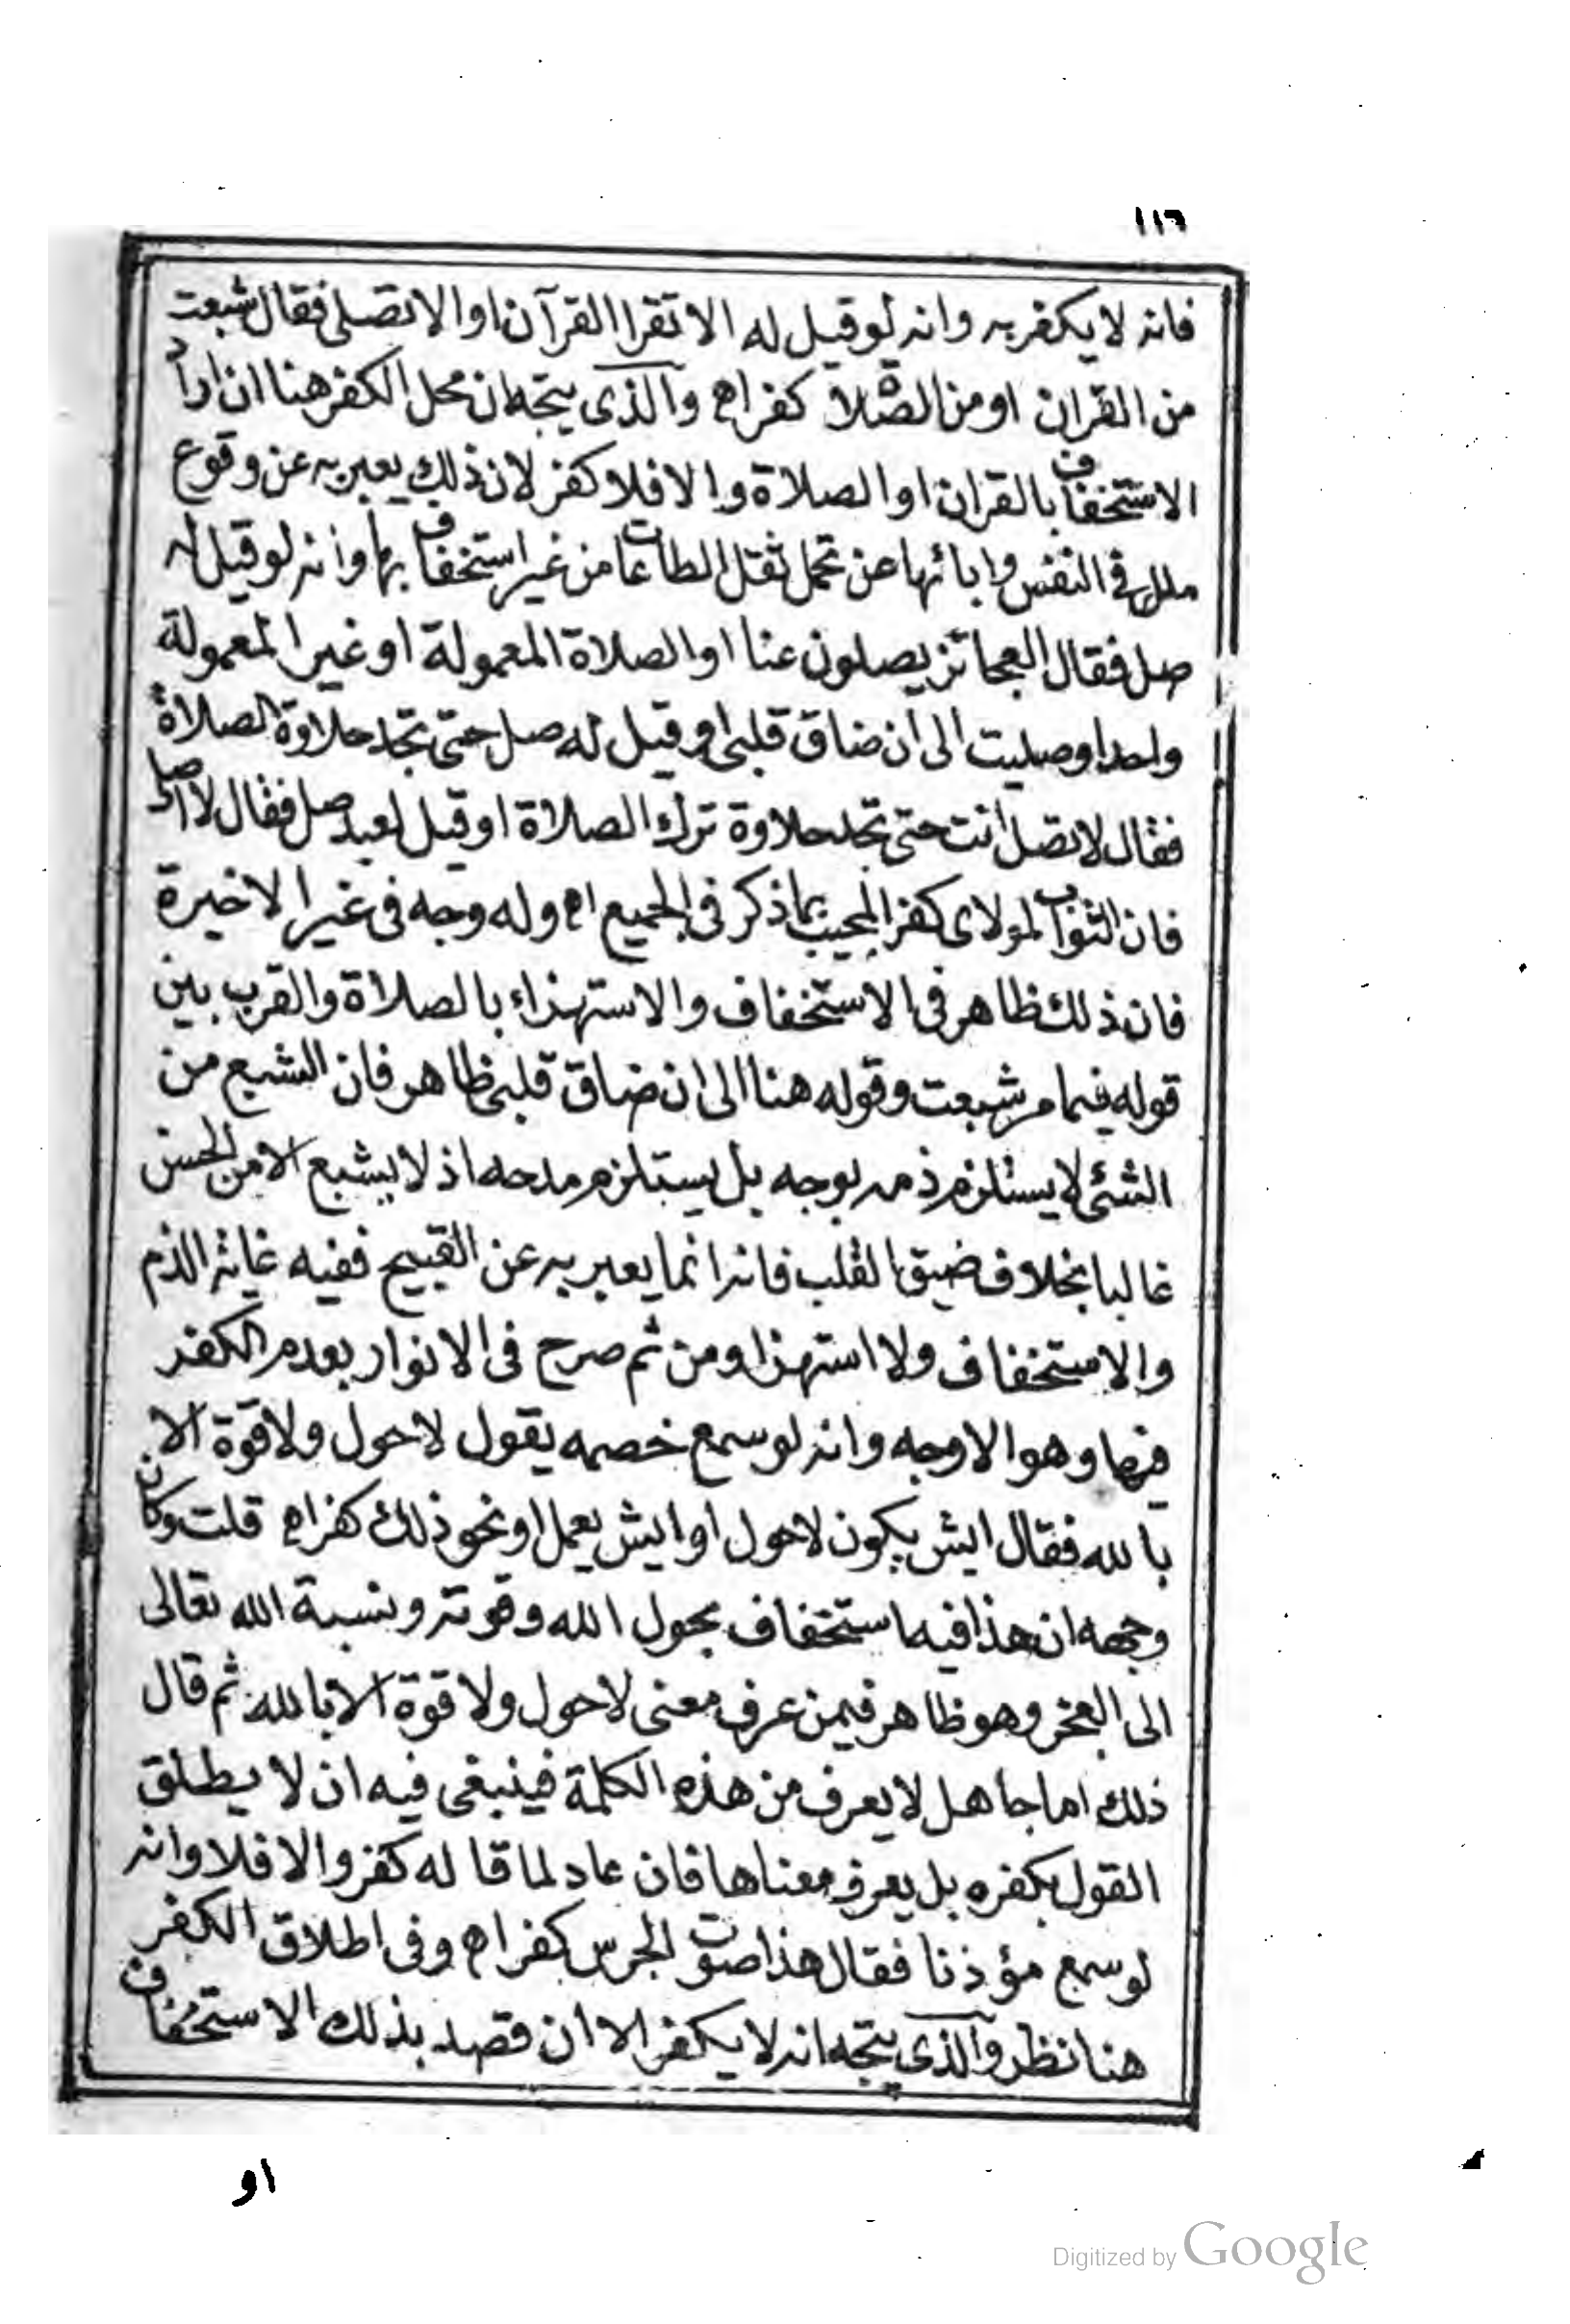 ١١٦
فانه لا يكفر به وانه لو قيل له الا تقرا القرآن او الا تصلى فقال شبعت
من القران او من الصلاة كفر اه والذى يتجه ان محل الكفر هنا ان اراد
الاستخفاف بالقران او الصلاة والا فلا كفر لان ذلك يعبر به عن وقوع
ملل فى النفس وابائها عن تحمل ثقل الطاعات من غير استخفاف بها وانه لو قيل له
صل فقال العجائز يصلون عنا او الصلاة المعمولة او غير المعمولة
واحد او صليت الى ان ضاق قلبى او قيل له صل حتى تجد حلاوة الصلاة
فقال لا تصل انت حتى تجد حلاوة ترك الصلاة او قيل لعبد صل فقال لا اصلى
فان الثواب لمولاى كفر المجيب بما ذكر فى الجميع اه وله وجه فى غير الاخيرة
فان ذلك ظاهر فى الاستخفاف والاستهزاء بالصلاة والقرب بين
قوله فيما مر شبعت وقوله هنا الى ان ضاق قلبى ظاهر فان الشبع من
الشئ لا يستلزم ذمه بوجه بل يستلزم مدحه اذ لا يشبع الا من الحسن
غالبا بخلاف ضيق القلب فانه انما يعبر به عن القبيح ففيه غاية الذم
والاستخفاف ولا استهزا ومن ثم صرح فى الانوار بعدم الكفر
فيها وهو الاوجه وانه لو سمع خصمه يقول لا حول ولا قوة الا
بالله فقال ايش يكون لا حول او ايش يعمل او نحو ذلك كفر اه قلت وكان
وجهه ان هذا فيه استخفاف بحول الله وقوته ونسبة الله تعالى
الى العجز وهو ظاهر فيمن عرف معنى لا حول ولا قوة الا بالله ثم قال
ذلك اما جاهل لا يعرف من هذه الكلمة فينبغى فيه ان لا يطلق
القول بكفره بل يعرف معناها فان عاد لما قاله كفر والا فلا وانه
لو سمع مؤذنا فقال هذا صوت الجرس كفر اه وفى اطلاق الكفر
هنا نظر والذى يتجه انه لا يكفر الا ان قصد بذلك الاستخفاف
او
Digitized by Google